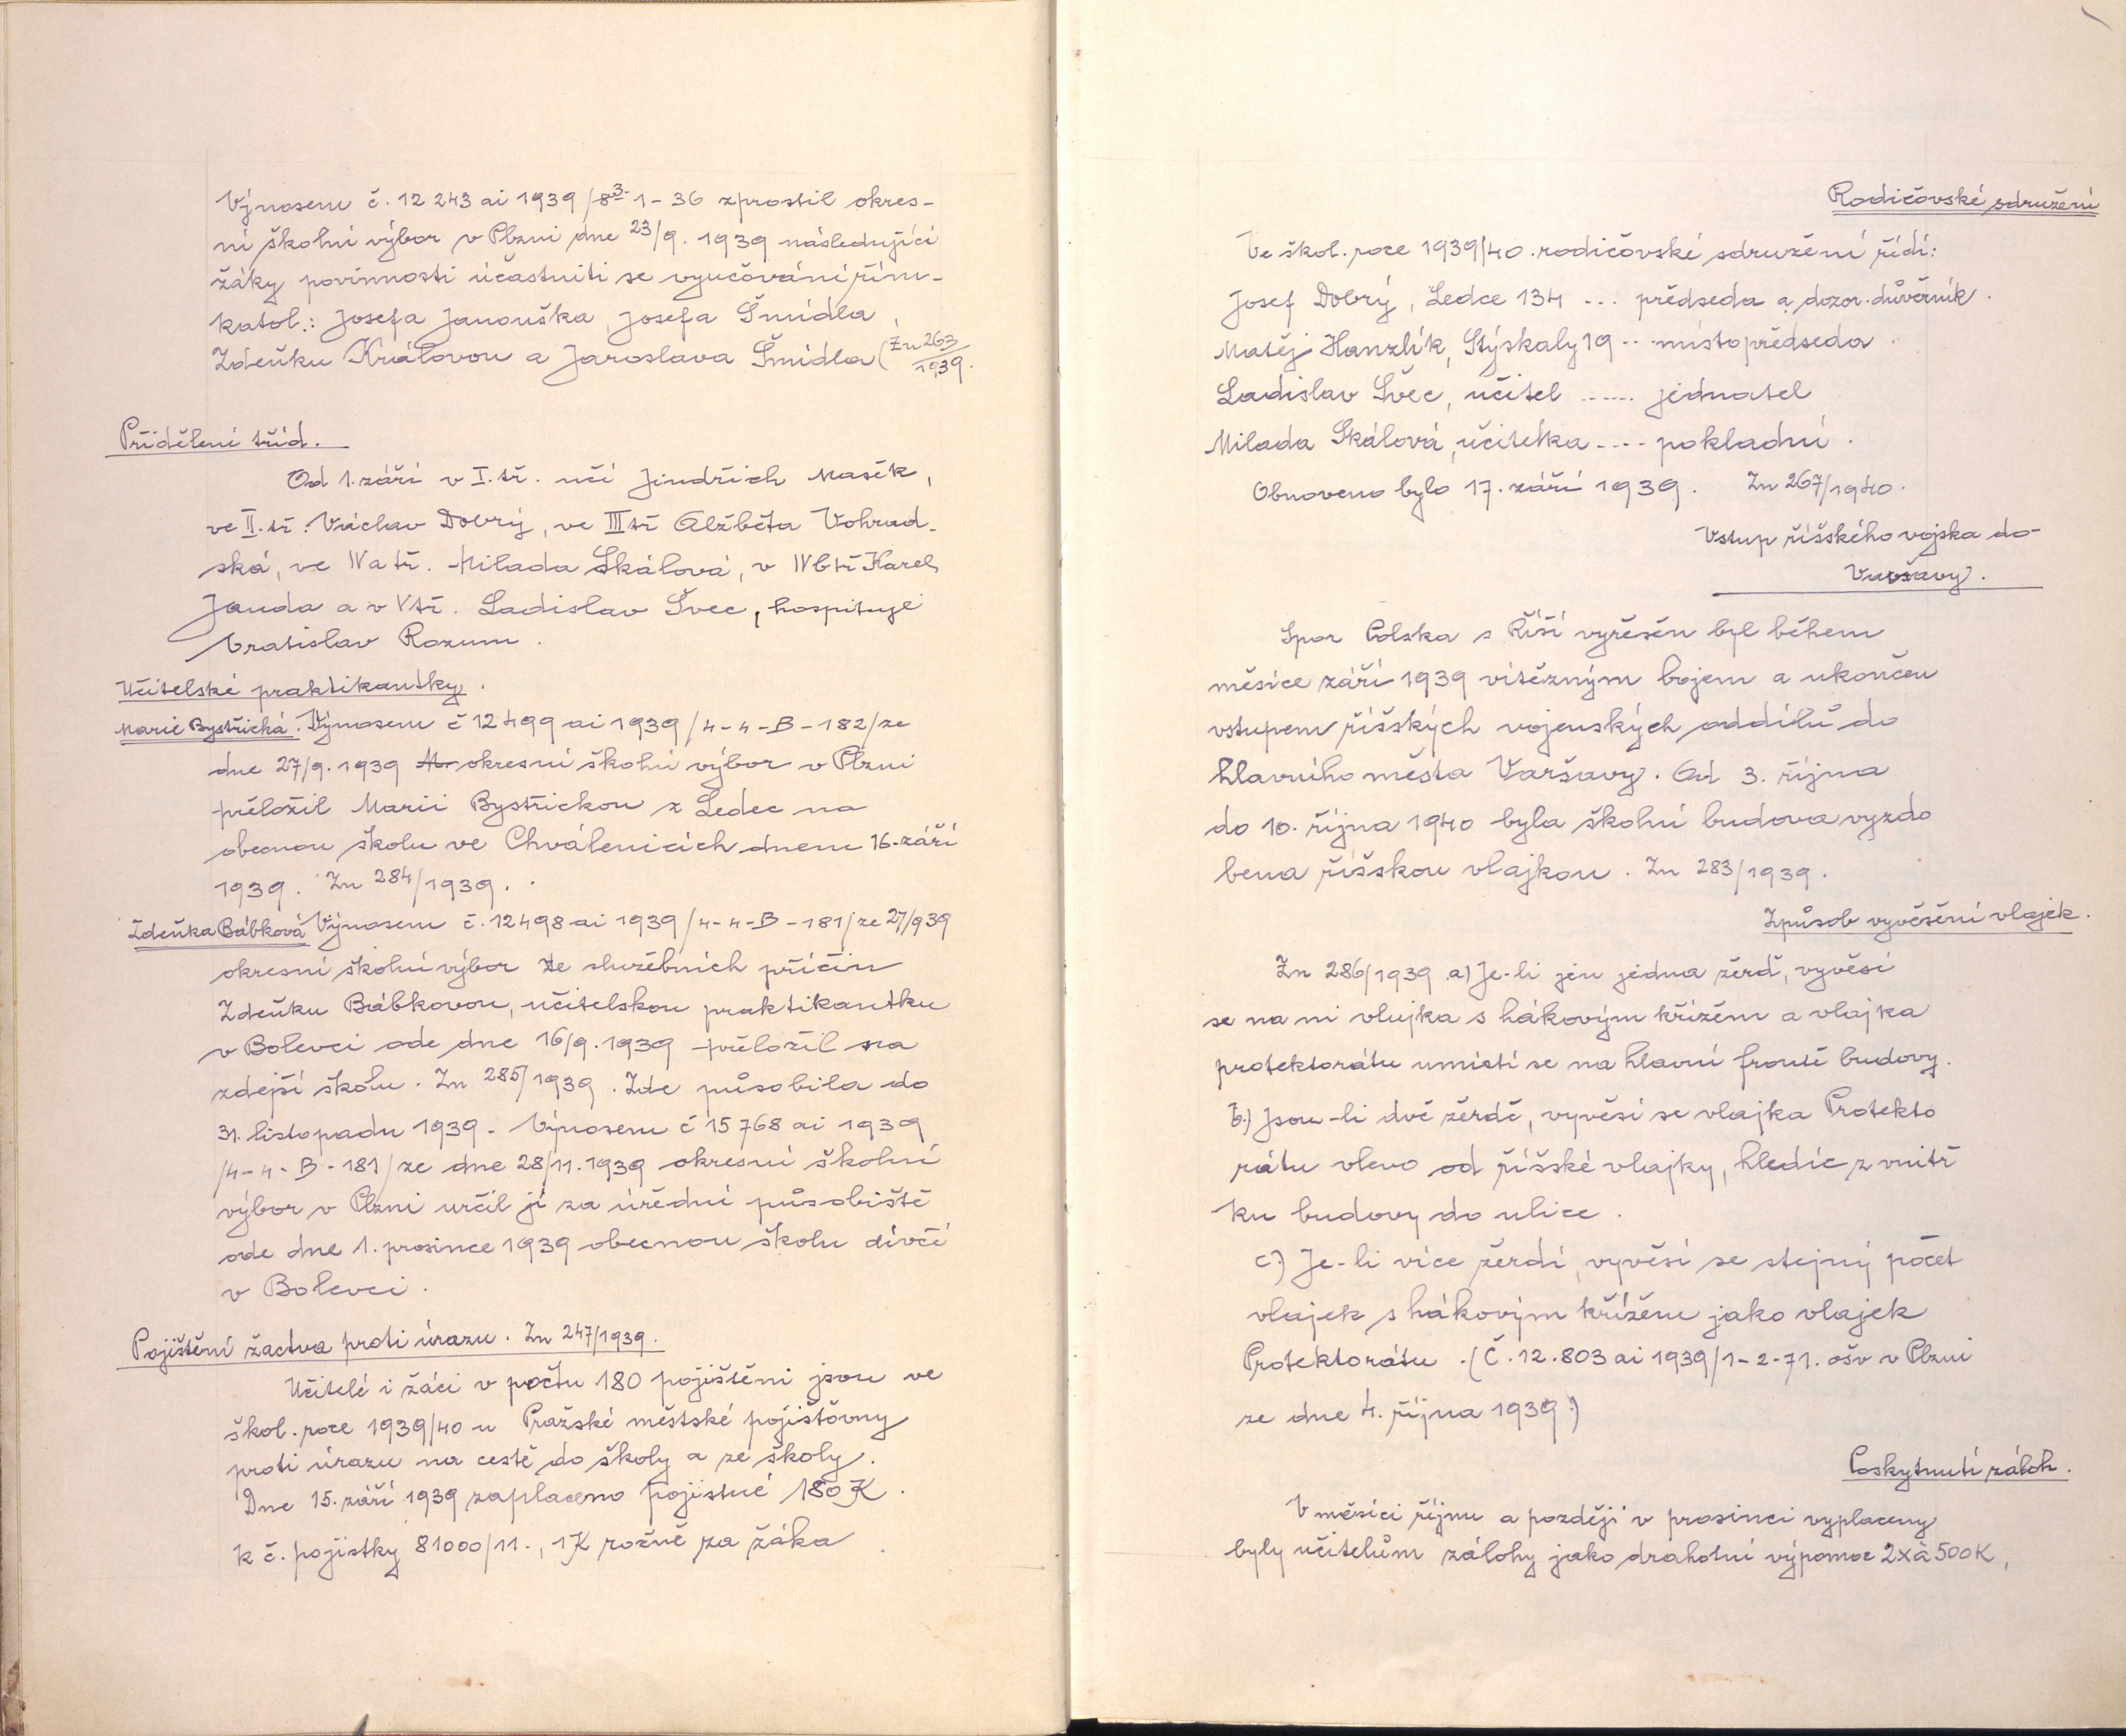 Výnosem č. 12 243 ai 1939 /8 3- 1 - 36 zprostil okres-
ní školní výbor v Plzni dne 23/9. 1939 následující
žáky povinnosti účastniti se vyučování řím-
katol.: Josefa Janouška, Josefa Šmídla,
Zdeňku Královou a Jaroslava Šmídla (Žn 263/1939.
Přidělení tříd.
Od 1. září v I. tř. učí Jindřich Mašek,
ve II. tř. Václav Dobrý, ve III tř Alžběta Vohrad-
ská, ve IVa tř. Milada Skálová, v IVb tř Karel
Janda a v V tř. Ladislav Švec, hospituje
Vratislav Rozum.
Učitelské praktikantky.
Marie Bystřická. Výnosem č 12499 ai 1939 /4-4-B-182/ ze
dne 27/9. 1939 okresní školní výbor v Plzni
přeložil Marii Bystřickou z Ledec na
obecnou školu ve Chválenicích dnem 16. září
1939. Zn 284/1939.
Zdeňka Bábková Výnosem č. 12498 ai 1939 /4-4-B-181/ ze 27/9 39
okresní školní výbor ze služebních příčin
Zdeňku Bábkovou, učitelskou praktikantku
v Bolevci ode dne 16/9. 1939 přeložil na
zdejší školu. Zn 285/1939. Zde působila do
31. listopadu 1939. Výnosem č 15768 ai 1939
/4-4-B-181/ ze dne 28/11. 1939 okresní školní
výbor v Plzni určil jí za úřední působiště
ode dne 1. prosince 1939 obecnou školu dívčí
v Bolevci.
Pojištění žactva proti úrazu. Zn 247/1939.
Učitelé i žáci v počtu 180 pojištěni jsou ve
škol. roce 1939/40 u Pražské městské pojišťovny
proti úrazu na cestě do školy a ze školy.
Dne 15. září 1939 zaplaceno pojistné 180 K.
k č. pojistky 81000/11., 1K ročně za žáka
Rodičovské sdružení
Ve škol. roce 1939/40 rodičovské sdružení řídí:
Josef Dobrý, Ledce 134 ... předseda a dozor. důvěrník.
Matěj Hanzlík, Stýskaly 19 .. místopředseda.
Ladislav Švec, učitel ...... jednatel
Milada Skálová, učitelka .... pokladní.
Obnoveno bylo 17. září 1939. Zn 267/1940.
Vstup říšského vojska do
Varšavy.
Spor Polska s Říší vyřešen byl během
měsíce září 1939 vítězným bojem a ukončen
vstupem říšských vojenských oddílů do
hlavního města Varšavy. Od 3. října
do 10. října 1940 byla školní budova vyzdo
bena říšskou vlajkou. Zn 283/1939.
Způsob vyvěšení vlajek.
Zn 286/1939 a) Je-li jen jedna žerď, vyvěsí
se na ni vlajka s hákovým křížem a vlajka
protektorátu umístí se na hlavní frontě budovy.
b.) Jsou-li dvě žerdě, vyvěsí se vlajka Protekto
rátu vlevo od říšské vlajky, hledíc z vnitř
ku budovy do ulice.
c.) Je-li více žerdí, vyvěsí se stejný počet
vlajek s hákovým křížem jako vlajek
Protektorátu. (Č. 12.803 ai 1939/1-2-71. ošv v Plzni
ze dne 4. října 1939.)
Poskytnutí záloh.
V měsíci říjnu a později v prosinci vyplaceny
byly učitelům zálohy jako drahotní výpomoc 2x à 500K,